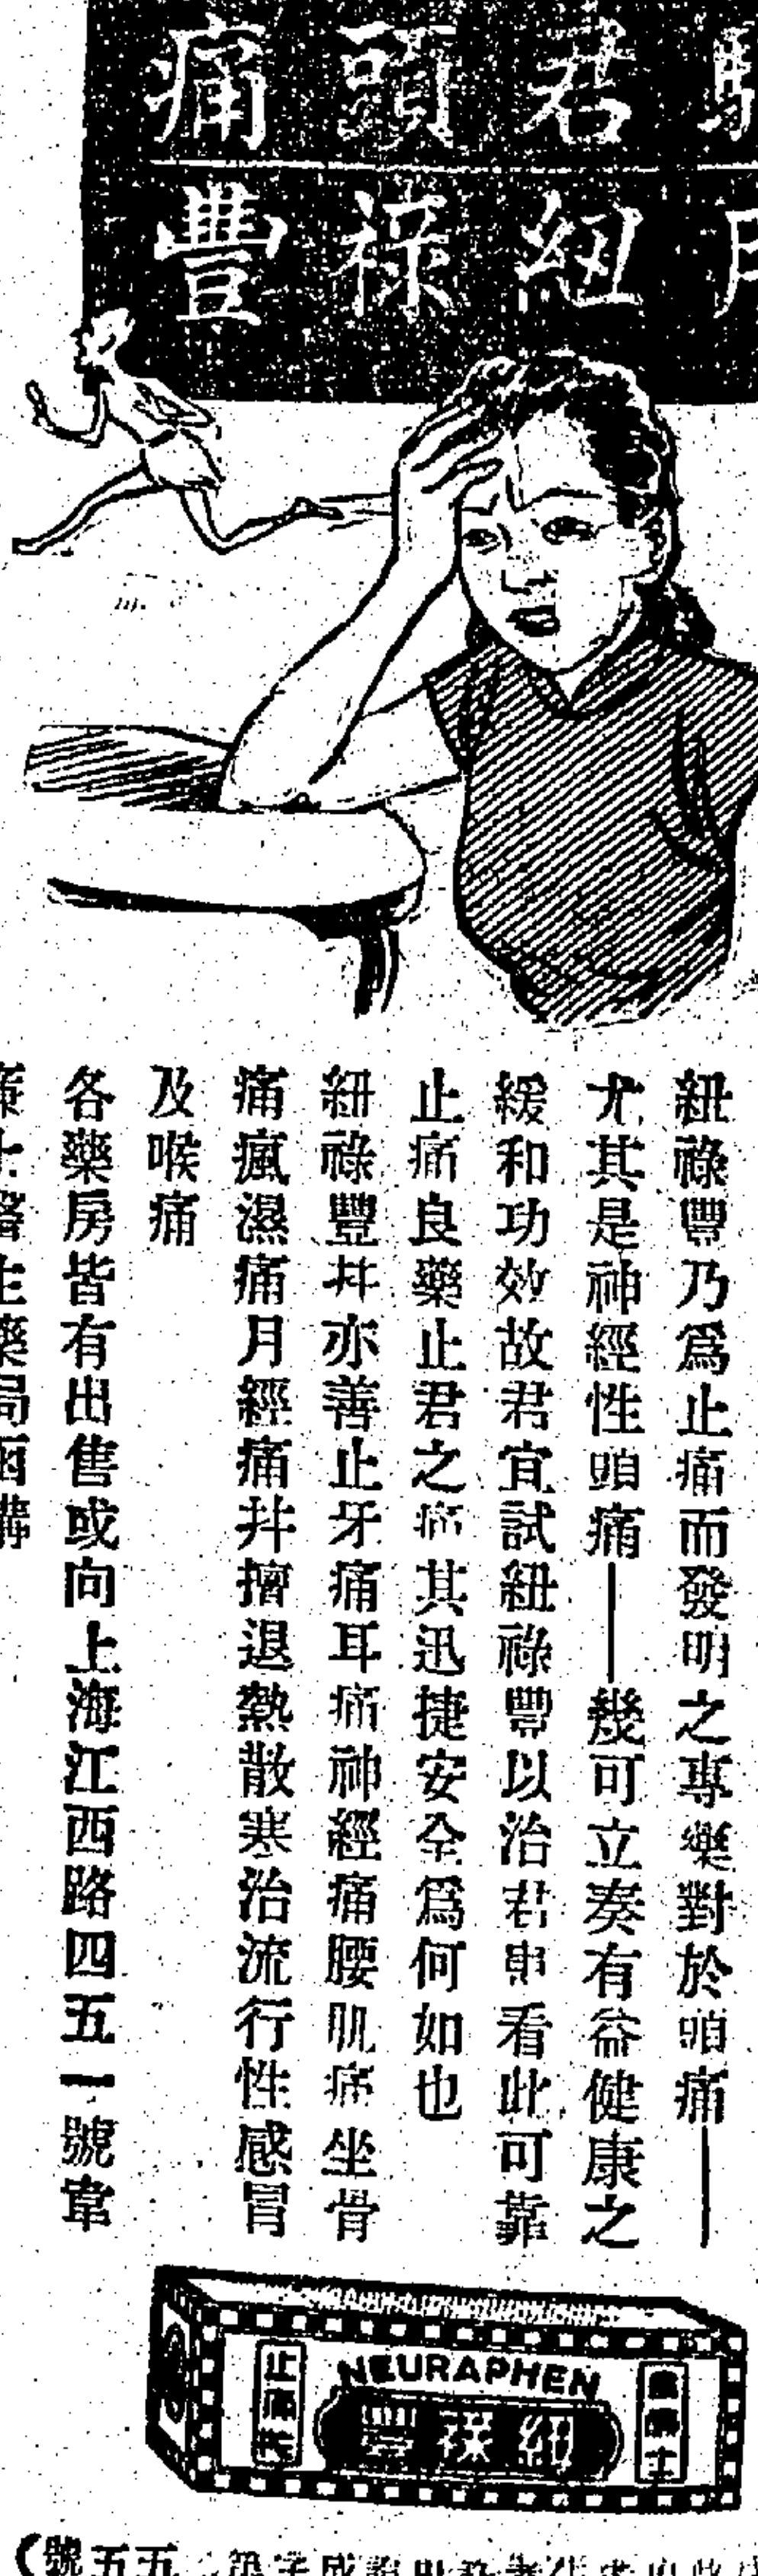 君頭痛
紐祿豐
紐祿豐乃爲止痛而發明之專藥對於頭痛——
尤其是神經性頭痛——幾可立奏有益健康之
緩和功效故君宜試紐祿豐以治君患看此可靠
止痛良藥止君之痛其迅捷安全爲何如也
紐祿豐幷亦善止牙痛耳痛神經痛腰肌痛坐骨
痛瘋濕痛月經痛幷擅退熱散寒治流行性感冒
及喉痛
各藥房皆有出售或向上海江西路四五一號韋
廉士醫生藥局函購
NEURAPHEN
紐祿豐
止痛片
五五號